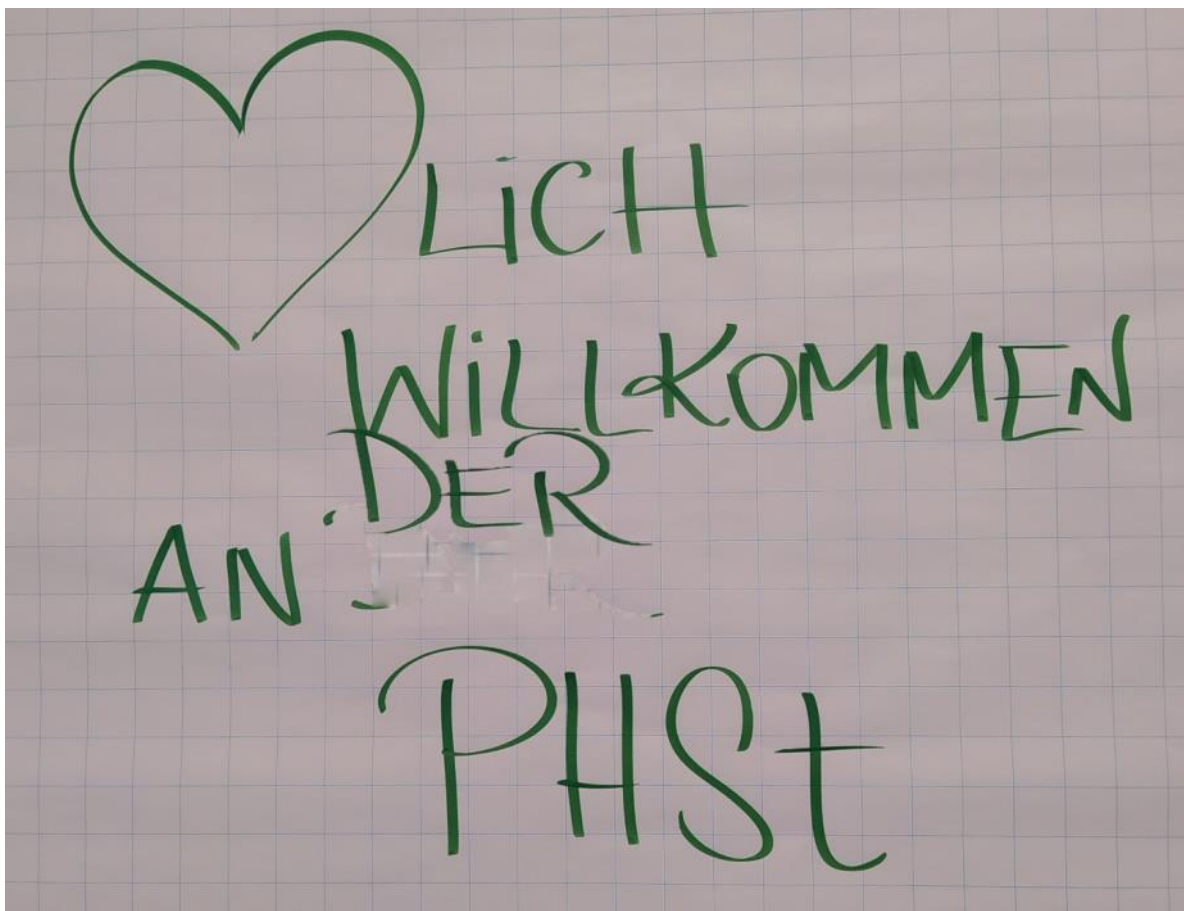 LiCH
WiLLKOMMEN
DER
AN
PHSt